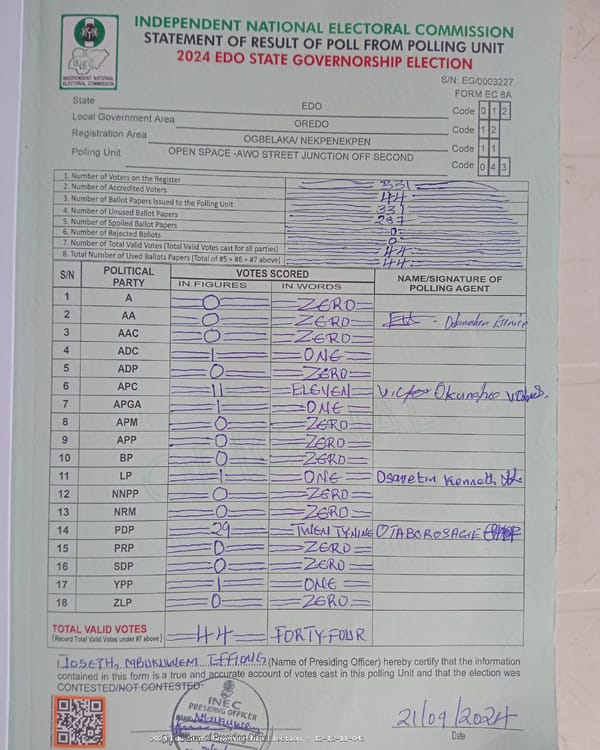 INDEPENDENT NATIONAL ELECTORAL COMMISSION
STATEMENT OF RESULT OF POLL FROM POLLING UNIT
2024 EDO STATE GOVERNORSHIP ELECTION
INEC
INDEPENDENT NATIONAL ELECTORAL COMMISSION
S/N: EG/0003227
FORM EC 8A
State EDO Code 0 1 2
Local Government Area OREDO Code 1 2
Registration Area OGBELAKA/ NEKPENEKPEN Code 1 1
Polling Unit OPEN SPACE -AWO STREET JUNCTION OFF SECOND Code 0 4 3
1. Number of Voters on the Register 331
2. Number of Accredited Voters 44
3. Number of Ballot Papers Issued to the Polling Unit 331
4. Number of Unused Ballot Papers 287
5. Number of Spoiled Ballot Papers 0
6. Number of Rejected Ballots 0
7. Number of Total Valid Votes (Total Valid Votes cast for all parties) 44
8. Total Number of Used Ballots Papers (Total of #5 + #6 + #7 above) 44
S/N POLITICAL PARTY VOTES SCORED NAME/SIGNATURE OF POLLING AGENT
IN FIGURES IN WORDS
1 A 0 ZERO
2 AA 0 ZERO
3 AAC 0 ZERO
4 ADC 1 ONE
5 ADP 0 ZERO
6 APC 11 ELEVEN Victor
7 APGA 1 ONE
8 APM 0 ZERO
9 APP 0 ZERO
10 BP 0 ZERO
11 LP 1 ONE Osaretin Kenneth
12 NNPP 0 ZERO
13 NRM 0 ZERO
14 PDP 29 TWENTYNINE OTABOROSAGIE
15 PRP 0 ZERO
16 SDP 0 ZERO
17 YPP 1 ONE
18 ZLP 0 ZERO
TOTAL VALID VOTES 44 FORTY-FOUR
(Record Total Valid Votes under #7 above)
I, JOSEPH, MBUKUWEM EFFIONG (Name of Presiding Officer) hereby certify that the information
contained in this form is a true and accurate account of votes cast in this polling Unit and that the election was
CONTESTED/NOT CONTESTED
INEC
PRESIDING OFFICER
21/09/2024
Date